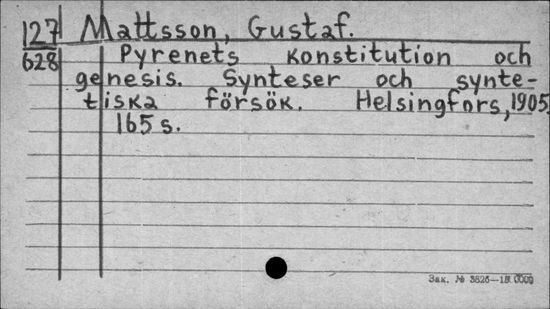 127 Mattsson, Gustaf.
628 Pyrenets konstitution och
genesis. Synteser och synte-
tiska försök. Helsingfors, 1905,
165 s.
Зак. № 3826—1